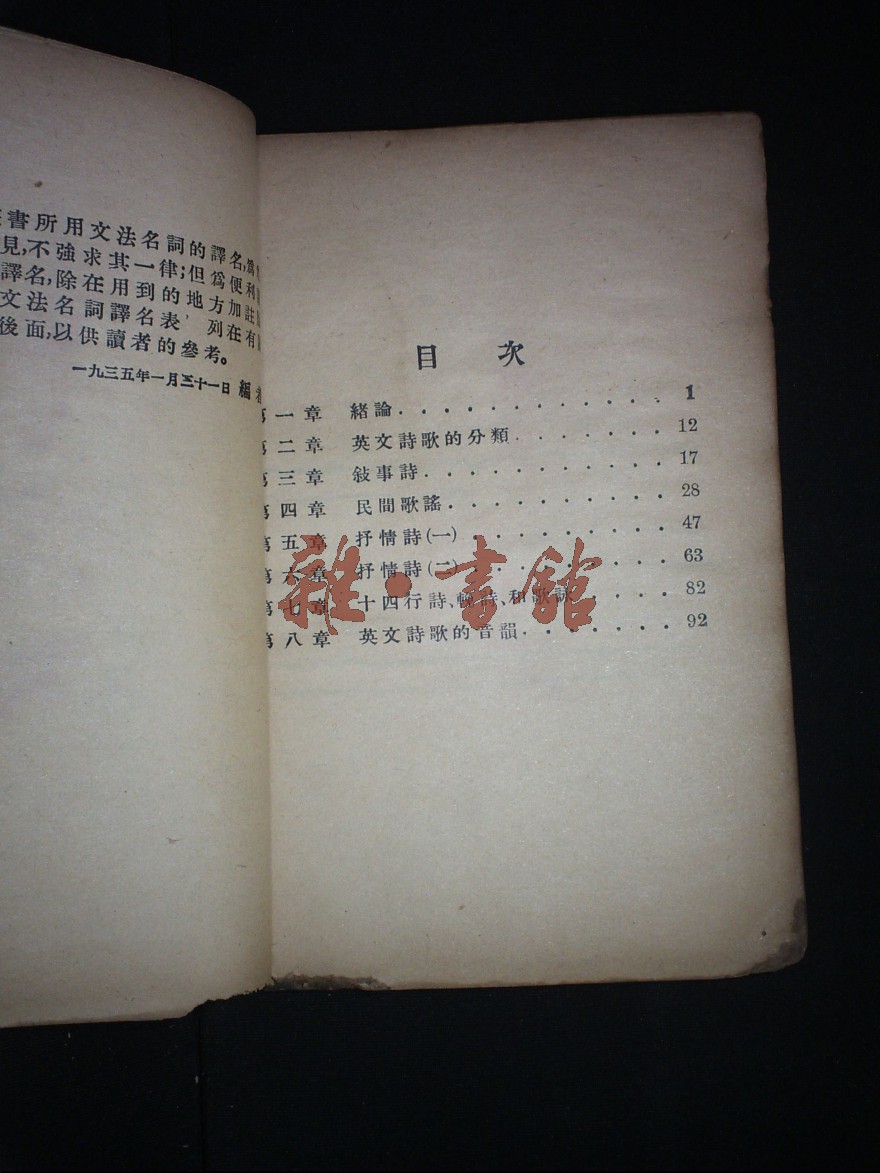 書所用文法名詞的譯名,爲
見,不強求其一律;但爲便利
譯名,除在用到的地方加註
文法名詞譯名表’列在有
後面,以供讀者的參考。
一九三五年一月三十一日 編者
目 次
第一章 緒論 1
第二章 英文詩歌的分類 12
第三章 敍事詩 17
第四章 民間歌謠 28
第五章 抒情詩(一) 47
第六章 抒情詩(二) 63
第七章 十四行詩、輓詩、和歌詠 82
第八章 英文詩歌的音韻 92
雜·書館